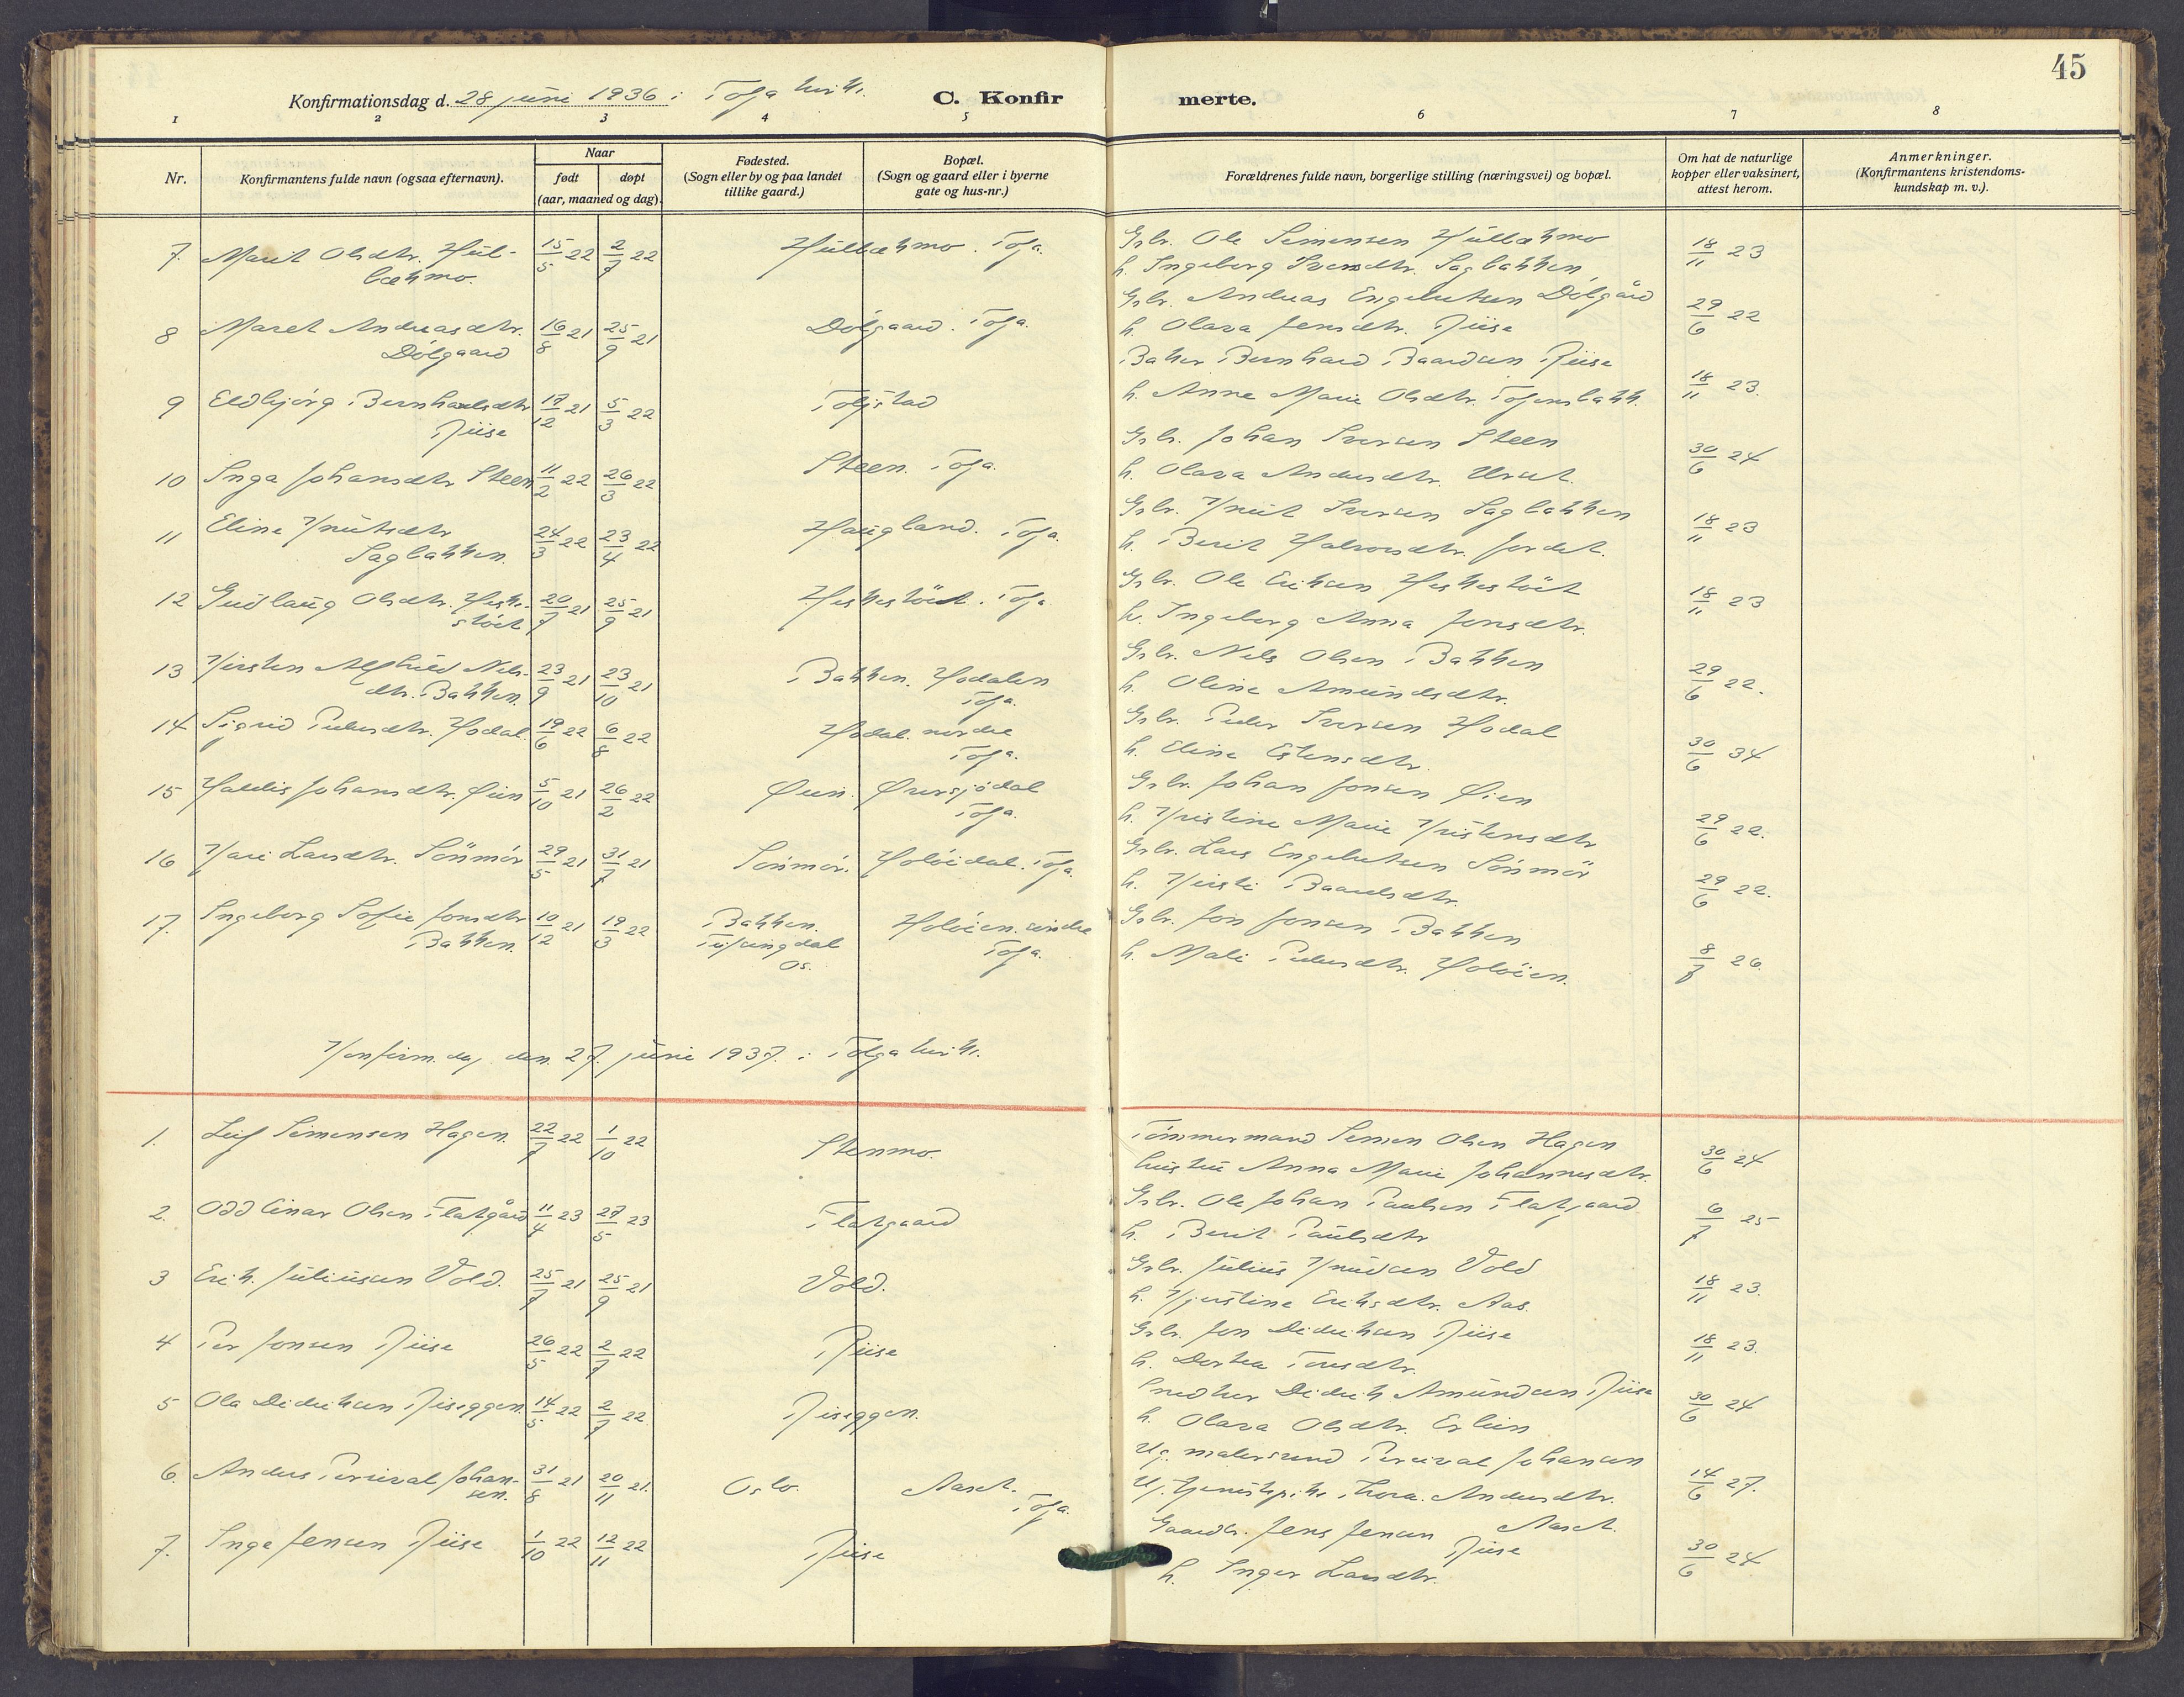 45
Konfirmationsdag d. 28 juni 1936 i Tolga kirke. C. Konfirmerte.
1 2 3 4 5 6 7 8
Nr.
Konfirmantens fulde navn (ogsaa efternavn).
Naar
født
døpt
(aar, maaned og dag).
Fødested.
(Sogn eller by og paa landet
tillike gaard.)
Bopæl.
(Sogn og gaard eller i byerne
gate og hus-nr.)
Forældrenes fulde navn, borgerlige stilling (næringsvei) og bopæl.
Om hat de naturlige
kopper eller vaksinert,
attest herom.
Anmerkninger.
(Konfirmantens kristendoms-
kundskap m. v.).
7. Marit Olsdtr. Hul- 15/5 22 2/7 22 Hulbækmo. Tolga. Grbr. Ole Simensen Hulbækmo 18/11 23
bækmo. h. Ingeborg Iversdtr. Sagbakken
8 Maret Andreasdtr. 16/8 21 25/9 21 Dölgaard. Tolga. Grbr. Andreas Engebretsen Dölgård 29/6 22
Dölgaard h. Olava Jensdtr. Riise
9 Eldbjörg Bernhardsdtr 17/12 21 5/3 22 Toljstad Baker Bernhard Baardsen Riise 18/11 23.
Riise h. Anne Marie Olsdtr. Tofensbakk.
10 Inga Johansdtr Steen 11/2 22 26/3 22 Steen. Tolga. Grbr. Johan Iversen Steen 30/6 24
h. Olava Andersdtr. Urset.
11 Eline Knutsdtr 24/3 22 23/4 22 Haugland. Tolga. Grbr. Knut Iversen Sagbakken 18/11 23
Sagbakken. h. Berit Halvorsdtr. Jordet.
12 Gudlaug Olsdtr. Heske- 20/7 21 25/9 21 Heskestöit. Tolga. Grbr. Ole Eriksen Heskestöit 18/11 23
stöit h. Ingeborg Anna Jensdtr.
13 Kirsten Alfhild Nels- 23/9 21 23/10 21 Bakken. Hodalen Grbr. Nels Olsen Bakken 29/6 22.
dtr. Bakken. Tolga. h. Oline Amundsdtr.
14 Sigrid Pedersdtr. Hodal. 19/6 22 6/8 22 Hodal. nordre Grbr. Peder Iversen Hodal 30/6 34
Tolga. h. Eline Estensdtr.
15 Haldis Johansdtr. Öien 5/10 21 26/2 22 Öien. Översjödal Grbr. Johan Jonsen Öien 29/6 22.
Tolga. h. Kristine Marie Kristensdtr
16 Kari Larsdtr. Sönmör 29/5 21 31/7 21 Sönmör. Holöidal. Tolga. Grbr. Lars Engebretsen Sönmör 29/6 22.
h. Kirsti Baardsdtr.
17. Ingeborg Sofie Jonsdtr 10/12 21 19/3 22 Bakken. Holöien. Grbr. Jon Jonsen Bakken 8/7 26.
Bakken. Tufsingdal Tolga. h. Mali Pedersdtr. Holöien.
Os.
Konfirm.dag den 27. juni 1937. i Tolga kirke.
1. Leif Simensen Hagen. 22/7 22 1/10 22 Stenmo. Tömmermand Simen Olsen Hagen 30/6 24
hustru Anna Marie Johannesdtr.
2. Odd Einar Olsen Flatgård 11/4 23 27/5 23 Flatgaard Grbr. Ole Johan Paulsen Flatgaard 6/7 25
h. Berit Paulsdtr
3 Erik Juliussen Vold. 25/7 21 25/9 21 Vold. Grbr. Julius Knudsen Vold 18/11 23.
h. Kjerstine Eriksdtr. Aas.
4 Per Jonsen Riise 26/5 22 2/7 22 Riise Grbr. Jon Didriksen Riise 18/11 23.
h. Dortea Tonsdtr.
5 Ola Didriksen Riseggen. 14/5 22 2/7 22. Riseggen. Snedker Didrik Amundsen Riise 30/6 24
h. Olava Olsdtr. Erlien
6. Anders Percival Johan- 31/8 21 20/11 21. Oslo. Aaset. Ug. malersvend Percival Johansen 14/6 27.
sen. Tolga. Ug. tjenestepike Thora Andersdtr. Aaset.
7. Inge Jensen Riise 1/10 22 12/11 22 Riise Gaardbr. Jens Jensen Riise 30/6 24
h. Inger Larsdtr.